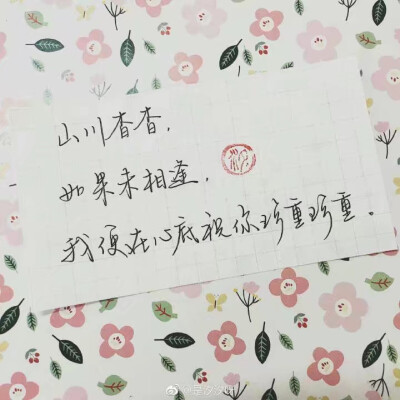 山川杳杳，
如果未相逢，
我便在心底祝你珍重珍重。